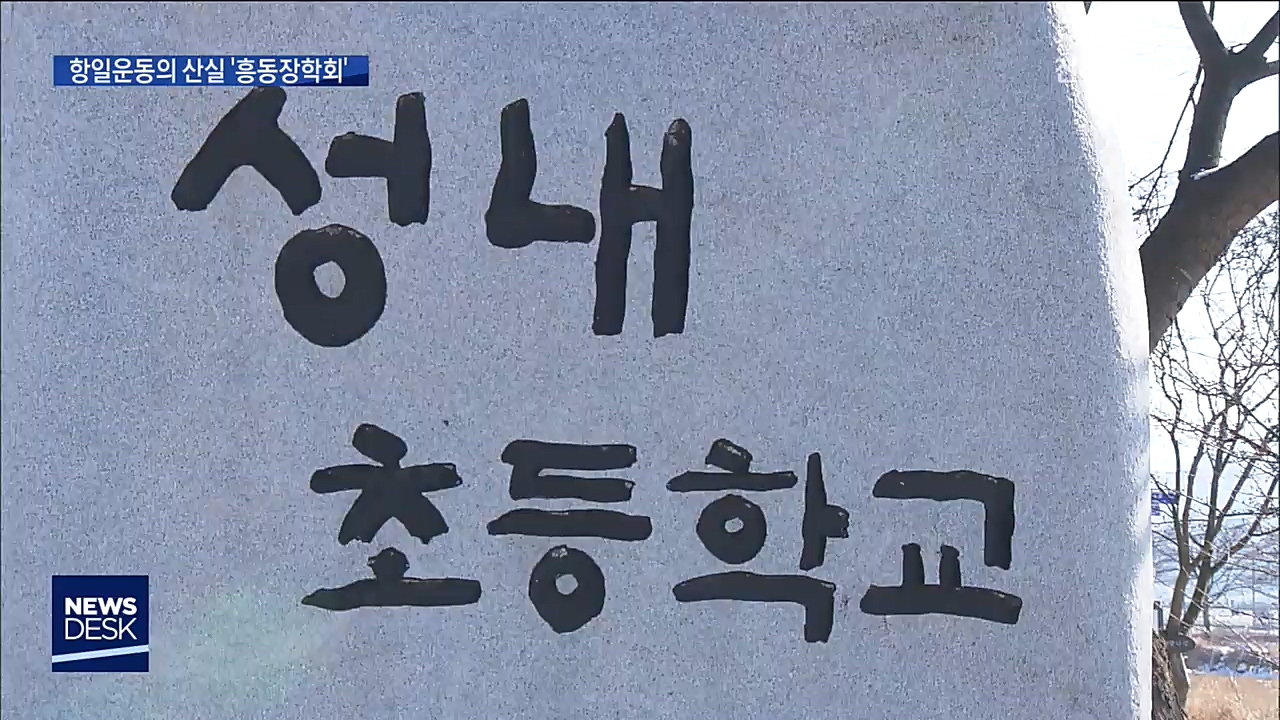 항일운동의 산실 '흥동장학회'
성내
초등학교
NEWS
DESK